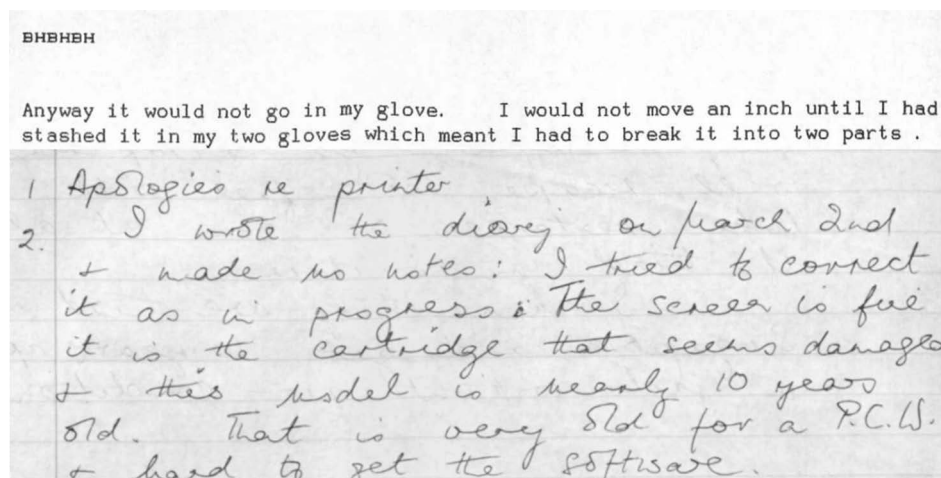 BHBHBH
Anyway it would not go in my glove. I would not move an inch until I had
stashed it in my two gloves which meant I had to break it into two parts .
1 Apologies re printer
2. I wrote the diary on March 2nd
+ made no notes: I tried to correct
it as in progress: The screen is fine
it is the cartridge that seems damaged
+ this model is nearly 10 years
old. That is very old for a P.C.W.
+ hard to get the software.